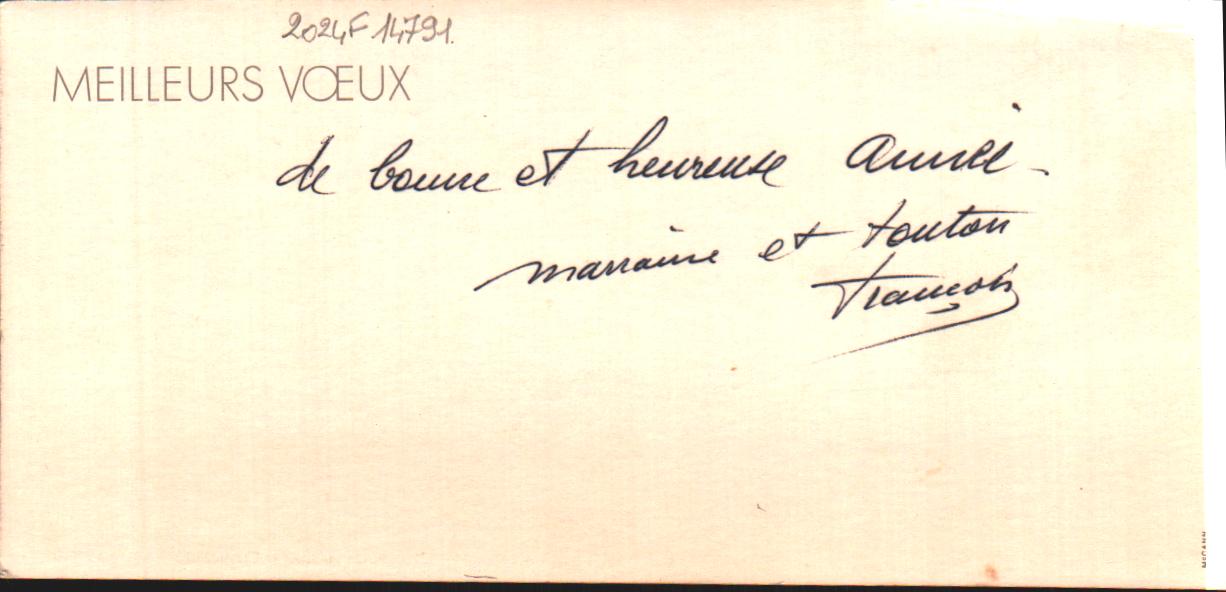 2024F 14791.
MEILLEURS VŒUX
de bonne et heureuse année -
marraine et tonton
François
McCANN